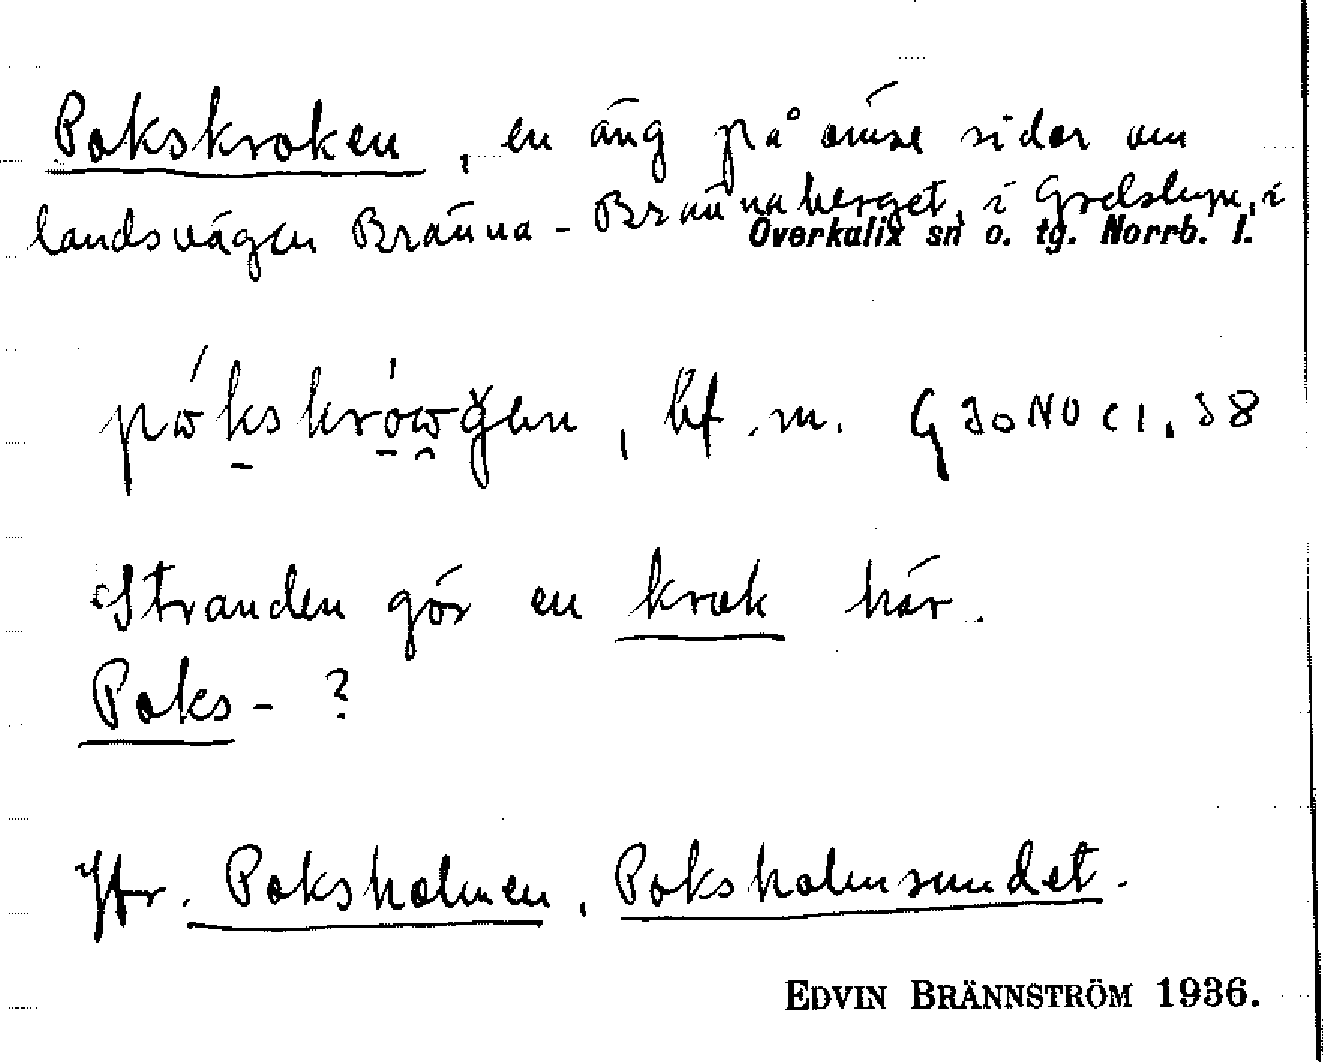 Pokskroken, en äng på ömse sidor om
landsvägen Bränna - Brännaberget, i Grelslupe, i
Överkalix sn o. tg. Norrb. l.
bf. m. G 30 NO c 1. 38
Stranden gör en krok här.
Poks- ?
Jfr. Poksholmen, Poksholmsundet.
EDVIN BRÄNNSTRÖM 1936.